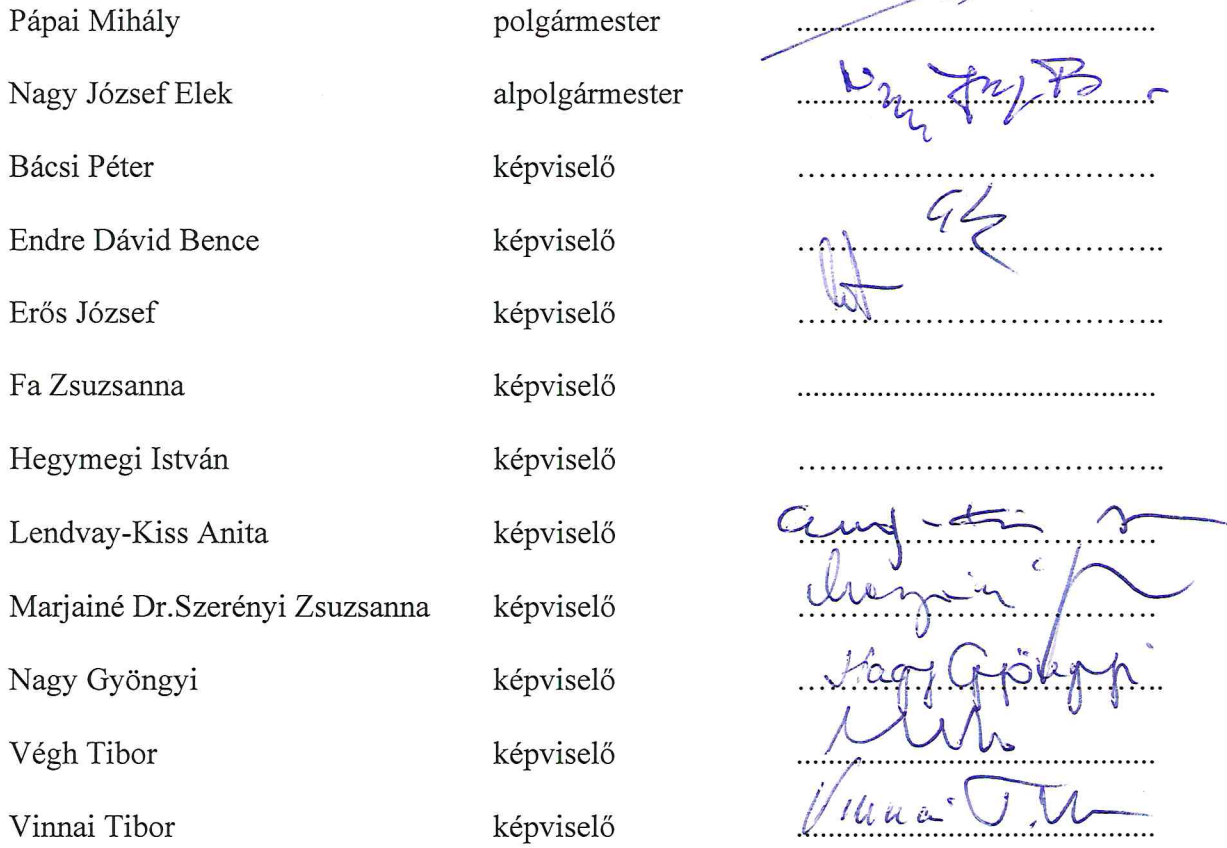 Pápai Mihály polgármester ........................................................
Nagy József Elek alpolgármester ........................................................
Bácsi Péter képviselő ........................................................
Endre Dávid Bence képviselő ........................................................
Erős József képviselő ........................................................
Fa Zsuzsanna képviselő ........................................................
Hegymegi István képviselő ........................................................
Lendvay-Kiss Anita képviselő ........................................................
Marjainé Dr.Szerényi Zsuzsanna képviselő ........................................................
Nagy Gyöngyi képviselő Nagy Gyöngyi
Végh Tibor képviselő ........................................................
Vinnai Tibor képviselő Vinnai T.